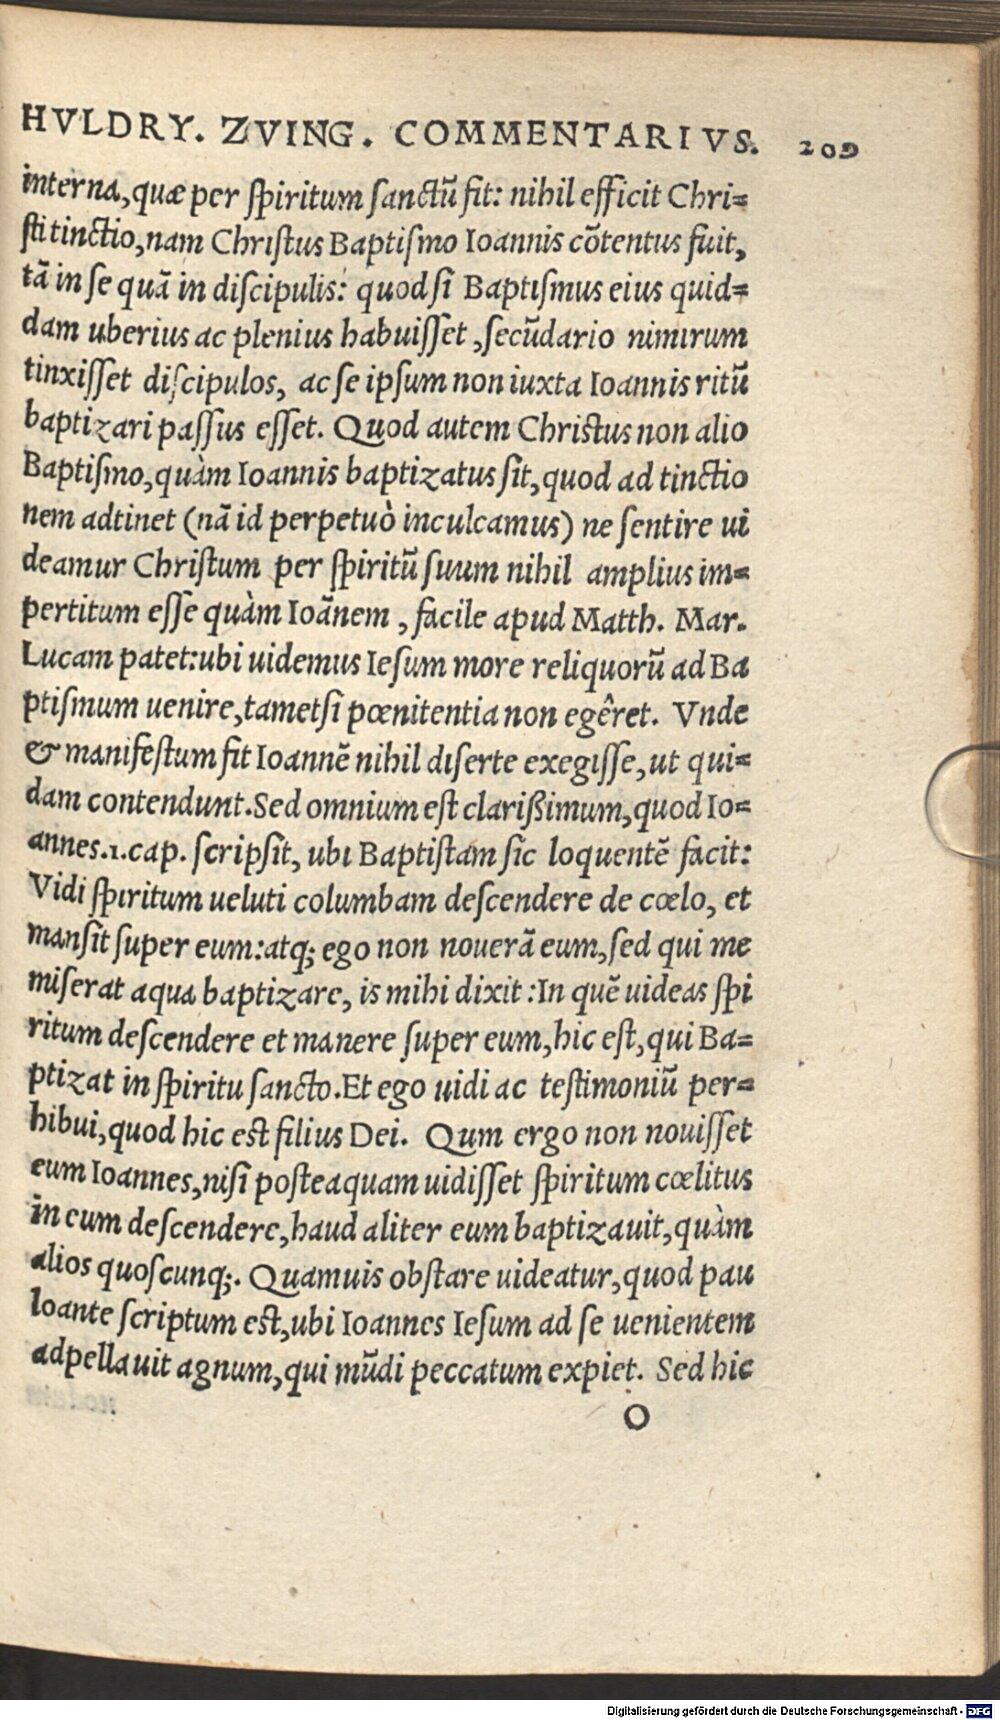 HVLDRY. ZVING. COMMENTARIVS. 209
interna, quæ per ſpiritum ſanctũ fit: nihil efficit Chri⸗
ſti tinctio, nam Chriſtus Baptiſmo Ioannis cõtentus fuit,
tã in ſe quã in diſcipulis: quod ſi Baptiſmus eius quid⸗
dam uberius ac plenius habuiſſet, ſecũdario nimirum
tinxiſſet diſcipulos, ac ſe ipſum non iuxta Ioannis ritũ
baptizari paſſus eſſet. Quod autem Chriſtus non alio
Baptiſmo, quàm Ioannis baptizatus ſit, quod ad tinctio
nem adtinet (nã id perpetuò inculcamus) ne ſentire ui
deamur Chriſtum per ſpiritũ ſuum nihil amplius im⸗
pertitum eſſe quàm Ioãnem, facile apud Matth. Mar.
Lucam patet: ubi uidemus Ieſum more reliquorũ ad Ba
ptiſmum uenire, tametſi pœnitentia non egêret. Vnde
& manifeſtum fit Ioannẽ nihil diſerte exegiſſe, ut qui⸗
dam contendunt. Sed omnium eſt clarißimum, quod Io⸗
annes.1.cap. ſcripſit, ubi Baptiſtam ſic loquentẽ facit:
Vidi ſpiritum ueluti columbam deſcendere de cœlo, et
manſit ſuper eum: atq; ego non nouerã eum, ſed qui me
miſerat aqua baptizare, is mihi dixit: In quẽ uideas ſpi
ritum deſcendere et manere ſuper eum, hic eſt, qui Ba⸗
ptizat in ſpiritu ſancto. Et ego uidi ac teſtimoniũ per⸗
hibui, quod hic eſt filius Dei. Qum ergo non nouiſſet
eum Ioannes, niſi poſteaquam uidiſſet ſpiritum cœlitus
in eum deſcendere, haud aliter eum baptizauit, quàm
alios quoſcunq;. Quamuis obſtare uideatur, quod pau
loante ſcriptum eſt, ubi Ioannes Ieſum ad ſe uenientem
adpellauit agnum, qui mũdi peccatum expiet. Sed hic
O
Digitalisierung gefördert durch die Deutsche Forschungsgemeinschaft - DFG